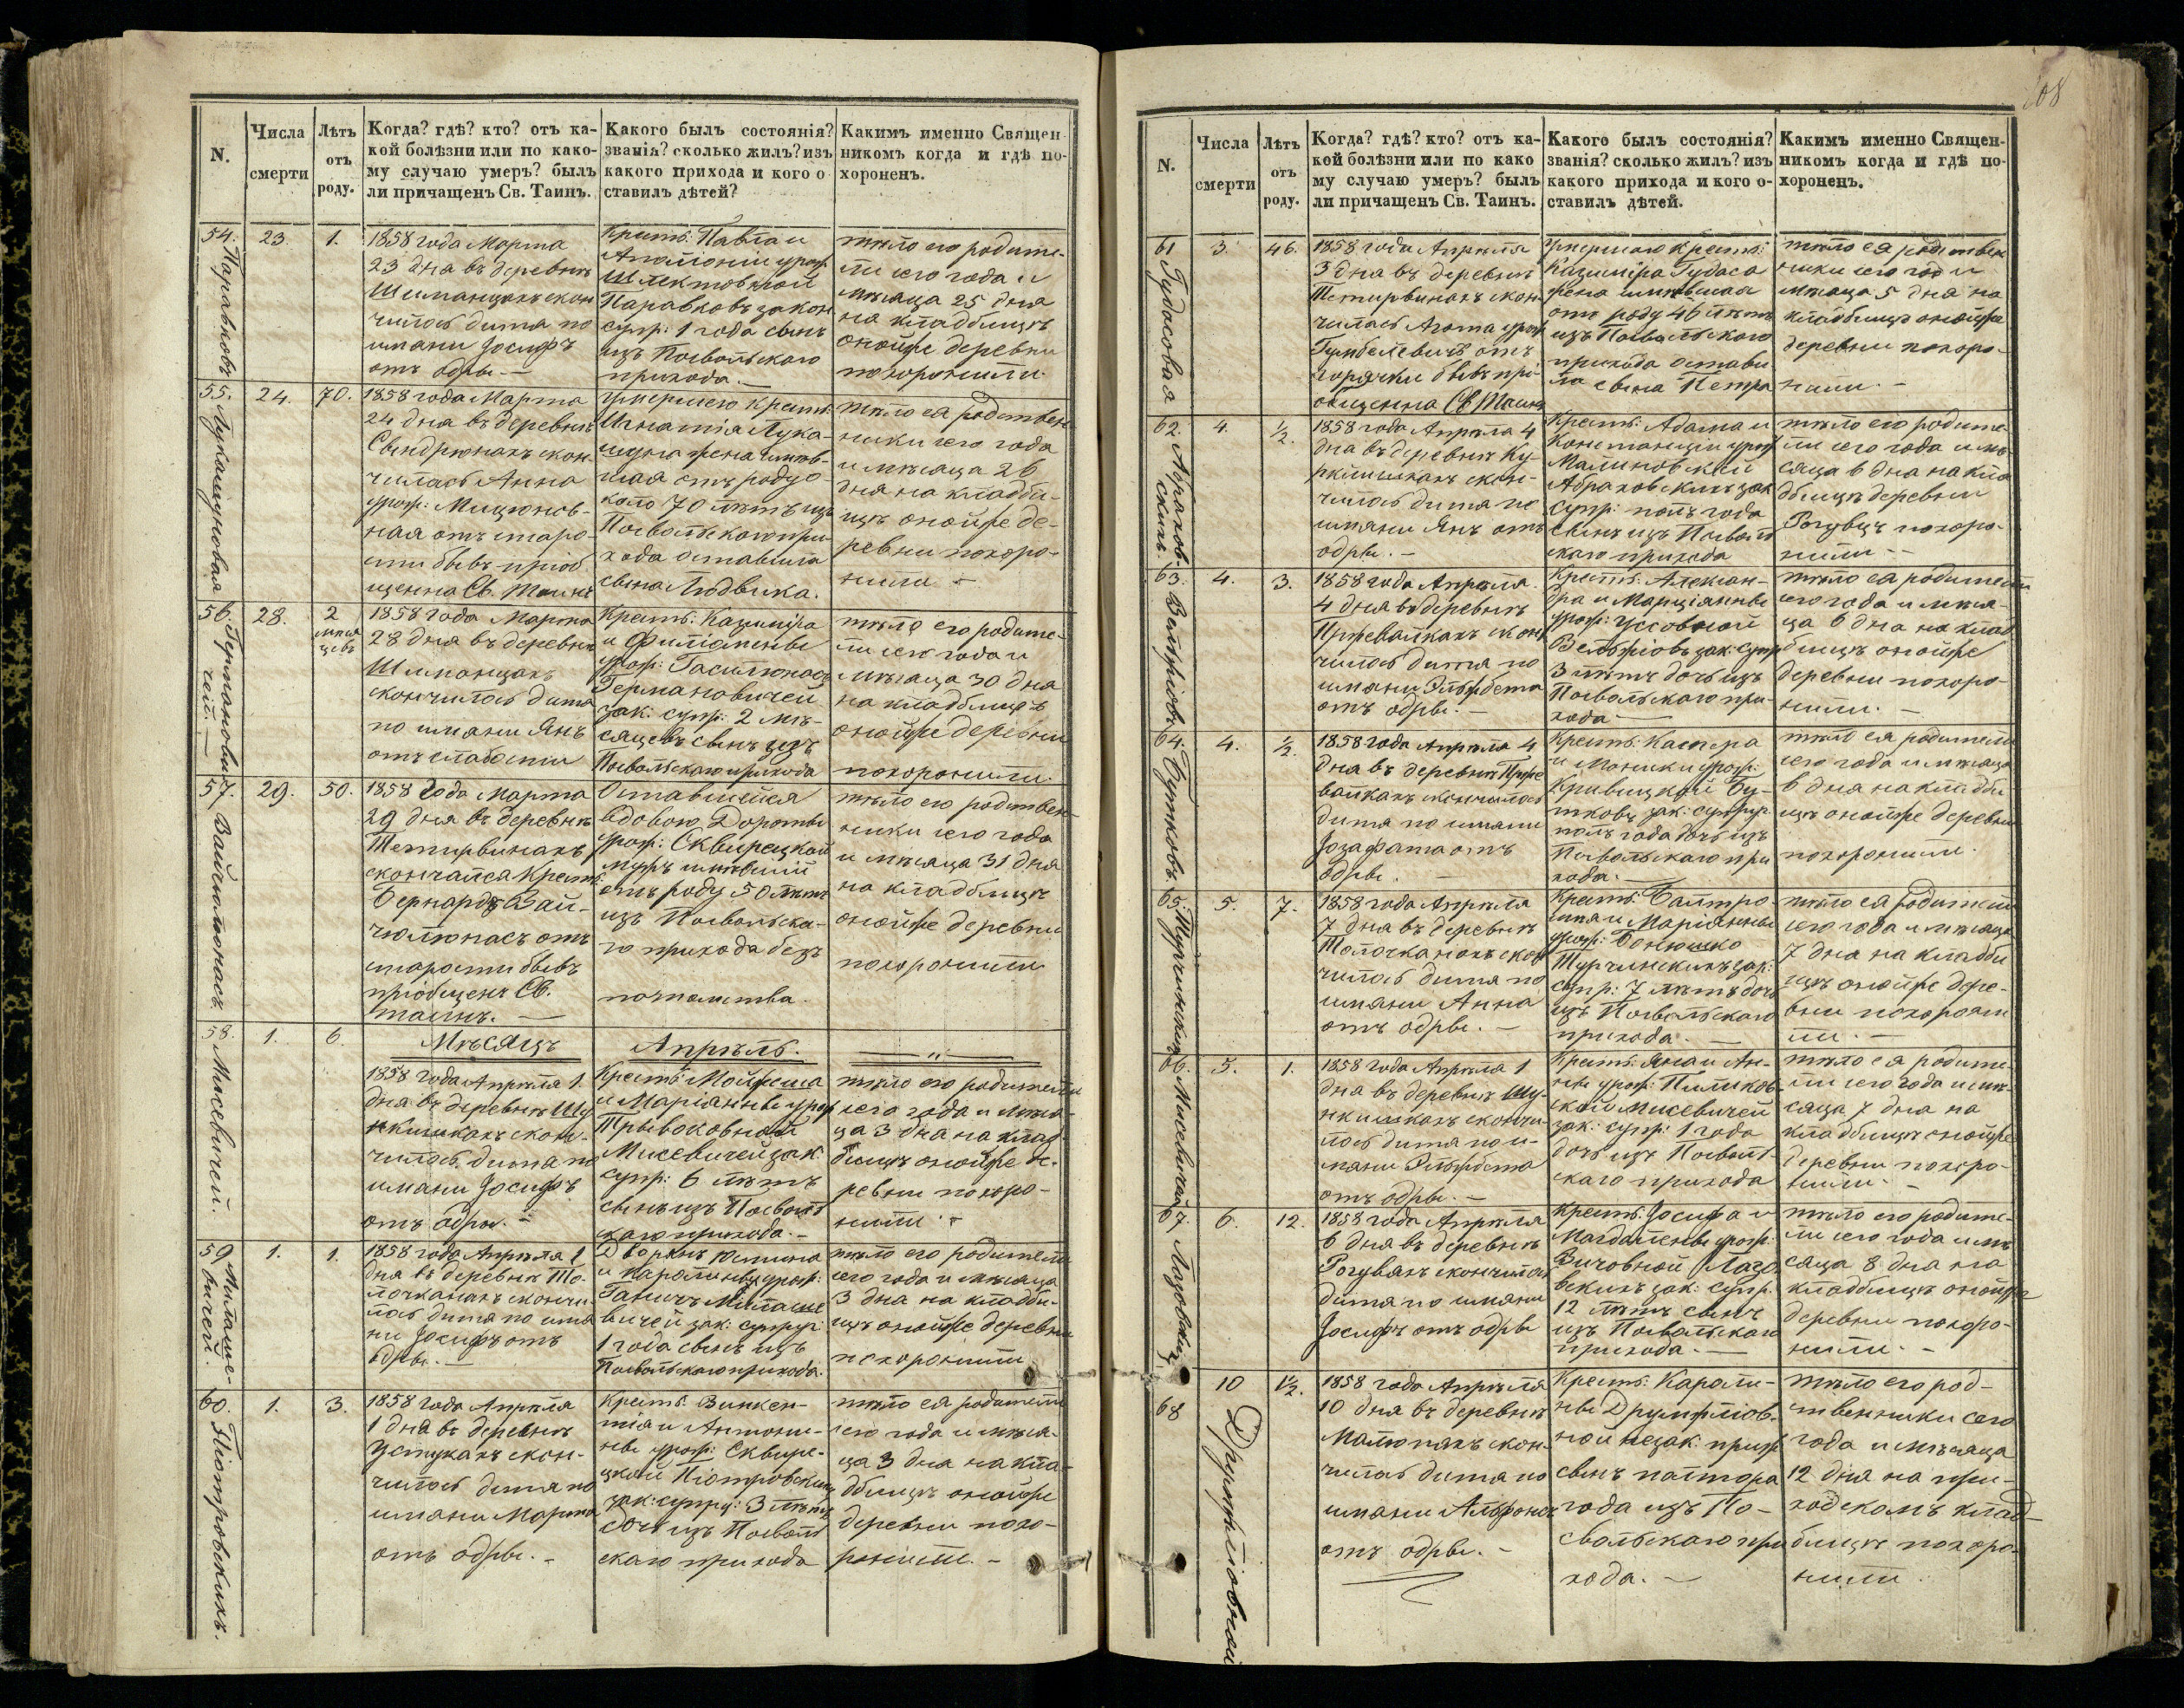 N.
Числа
смерти
Лѣтъ
отъ
роду.
Когда? гдѣ? кто? отъ ка-
кой болѣзни или по како-
му случаю умеръ? былъ
ли причащенъ Св. Таинъ.
Какого былъ состоянія?
званія? сколько жилъ? изъ
какого прихода и кого о
ставилъ дѣтей?
Какимъ именно Священ-
никомъ когда и гдѣ по-
хороненъ.
54.
23.
1.
1858 года Марта
23 дня въ деревнѣ
Шиманцахъ скон
чилось дитя по
имяни Іосифъ
отъ одры. —
Крест: Павла и
Аполоніи урож:
закон
супр: 1 года сынъ
изъ Посвольскаго
прихода. —
тѣло его родите-
ли сего года и
мѣсяца 25 дня
на кладбищѣ
онойже деревни
похоронили.
55.
Лукашуновая
24.
70.
1858 года Марта
24 дня въ деревнѣ
скон-
чилась Анна
урож:
ная отъ старо-
сти бывъ пріоб
щенна Св. Таинъ
умершего Крест:
Игнатія Лука-
шуна жена имѣв-
шая отъ роду о-
коло 70 лѣтъ изъ
Посвольскаго при
хода оставила
сына Людвика.
тѣло ея родствен-
ники сего года
и мѣсяца 26
дня на кладби-
щѣ онойже де-
ревни похоро-
нили —
56.
Германови-
чей. —
28.
2
мѣся
цевъ
1858 года Марта
28 дня въ деревнѣ
Шиманцахъ
скончилось дитя
по имяни Янъ
отъ слабости
Крест: Казиміра
и Филіоменѣ
урож:
Германовичей
зак: супр: 2 мѣ-
сяцевъ сынъ изъ
Посвольскаго прихода
тѣло его родите-
ли сего года и
мѣсяца 30 дня
на кладбищѣ
онойже деревни
похоронили.
57.
Вайчюлюнасъ
29.
50.
1858 года Марта
29 дня въ деревнѣ
Тетирвинахъ
скончался Крест:
Бернардъ Вай-
чюлюнасъ отъ
старости бывъ
пріобщенъ Св.
таинъ. —
Оставшейся
вдовою Дороты
урож: Сквирецкой
мужъ имѣвшій
отъ роду 50 лѣтъ
изъ Посвольска-
го прихода безъ
потомства.
тѣло его родствен-
ники сего года
и мѣсяца 31 дня
на кладбищѣ
онойже деревни
похоронили
Мѣсяцъ
Апрѣль.
— „ —
58.
Мисевичей.
1.
6.
1858 года Апрѣля 1.
дня въ деревнѣ Шу
нкишкахъ скон-
чилось дитя по
имяни Іосифъ
отъ одры. —
Крест: Мойжеша
и Маріанны урож
Мисевичей зак:
супр: 6 лѣтъ
сынъ изъ Посволь
скаго прихода. —
тѣло его родители
сего года и мѣся-
ца 3 дня на клад-
бищѣ онойже де-
ревни похоро-
нили. —
59.
Милаше-
вичей.
1.
1.
1858 года Апрѣля 1
дня въ деревнѣ То-
лочканахъ скончи-
лось дитя по имя
ни Іосифъ отъ
одры. —
Дворянъ Юстина
и Каролины урож:
Ганичъ Милаше
вичей зак: супруг:
1 года сынъ изъ
Посвольскаго прихода.
тѣло его родители
сего года и мѣсяца
3 дня на кладби-
щѣ онойже деревни
похоронили
60.
Піотровскихъ.
1.
3.
1858 года Апрѣля
1 дня въ деревнѣ
Устукахъ скон-
чилось дитя по
имяни Марта
отъ одры. —
Крест: Винкен-
тія и Антони-
ны урож: Сквире-
цкой Піотровскихъ
зак: супру: 3 лѣтъ
дочь изъ Посволь
скаго прихода
тѣло ея родители
сего года и мѣся-
ца 3 дня на кла-
дбищѣ онойже
деревни похо-
ронили. —
108
N.
Числа
смерти
Лѣтъ
отъ
роду.
Когда? гдѣ? кто? отъ ка-
кой болѣзни или по како
му случаю умеръ? былъ
ли причащенъ Св. Таинъ.
Какого былъ состоянія?
званія? сколько жилъ? изъ
какого прихода и кого о-
ставилъ дѣтей.
Какимъ именно Священ-
никомъ когда и гдѣ по-
хороненъ.
61
Гудасовая
3.
46.
1858 года Апрѣля
3 дня въ деревнѣ
Тетирвинахъ скон-
чилась Агота урож
отъ
горячки бывъ прі-
общенна Св Таинъ
умершаго Крест:
Казиміра Гудаса
жена имѣвшая
отъ роду 46 лѣтъ
изъ Посвольскаго
прихода остави
ла сына Петра
тѣло ея родствен
ники сего год и
мѣсяца 5 дня на
кладбищѣ онойже
деревни похоро-
нили. —
62
Абрахов-
скихъ.
4.
½.
1858 года Апрѣля 4
дня въ деревнѣ Ку-
ркишкахъ скон-
чилось дитя по
имяни Янъ отъ
одры. —
Крест: Адама и
Констанціи урож
Малиновской
Абраховскихъ зак
супр: полъ года
сынъ изъ Посволь
скаго прихода
тѣло его родите-
ли сего года и мѣ-
сяца 6 дня на кла
дбищѣ деревни
похоро-
нили —
63.
4.
3.
1858 года Апрѣля
4 дня въ деревнѣ
скон
чилось дитя по
имяни Эльжбета
отъ одры. —
Крест: Алексан-
дра и Марціянны
урож:
зак: супр
3 лѣтъ дочь изъ
Посвольскаго при-
хода —
тѣло ея родители
сего года и мѣся-
ца 6 дня на клад
бищѣ онойже
деревни похоро-
нили. —
64.
Бутковъ.
4.
½.
1858 года Апрѣля 4
дня въ деревнѣ
скончилось
дитя по имяни
Іозафата отъ
одры. —
Крест: Каспера
и Моники урож:
Кривицкой Бу-
тковъ зак: супруг
полъ года дочь изъ
Посвольскаго при
хода. —
тѣло ея родители
сего года и мѣсяца
6 дня на кладби
щѣ онойже деревни
похоронили.
65.
Турчинскихъ
5.
7.
1858 года Апрѣля
7 дня въ деревнѣ
Толочканахъ скон
чилось дитя по
имяни Анна
отъ одры. —
Крест: Балтро-
мея и Маріянны
урож:
Турчинскихъ зак:
супр: 7 лѣтъ дочь
изъ Посвольскаго
прихода. —
тѣло ея родители
сего года и мѣсяца
7 дня на кладби
щѣ онойже дере-
вни похорони
ли. —
66.
Мисевичей
5.
1.
1858 года Апрѣля 1
дня въ деревнѣ Шу-
нкишкахъ скончи-
лось дитя по и-
мяни Эльжбета
отъ одры. —
Крест: Яна и Ан-
ны урож:
ской Мисевичей
зак: супр: 1 года
дочь изъ Посволь-
скаго прихода
тѣло ея родите-
ли сего года и мѣ-
сяца 7 дня на
кладбищѣ онойже
деревни похоро-
нили. —
67.
6.
12.
1858 года Апрѣля
6 дня въ деревнѣ
скончилось
дитя по имяни
Іосифъ отъ одры
Крест: Іосифа и
Магдалены урож:
Вичовной Лаго
вскихъ зак: супр.
12 лѣтъ сынъ
изъ Посвольскаго
прихода. —
тѣло его родите-
ли сего года и мѣ
сяца 8 дня на
кладбищѣ онойже
деревни похоро-
нили. —
68
Друмжловной
10
1½.
1858 года Апрѣля
10 дня въ деревнѣ
скон-
чилось дитя по
имяни Альфонсъ
отъ одры. —
Крест: Кароли-
ны Друмжлов-
ной незак: приж
сынъ палтора
года изъ По-
свольскаго при
хода. —
тѣло его род-
ственники сего
года и мѣсяца
12 дня на при-
ходскомъ клад-
бищѣ похоро-
нили